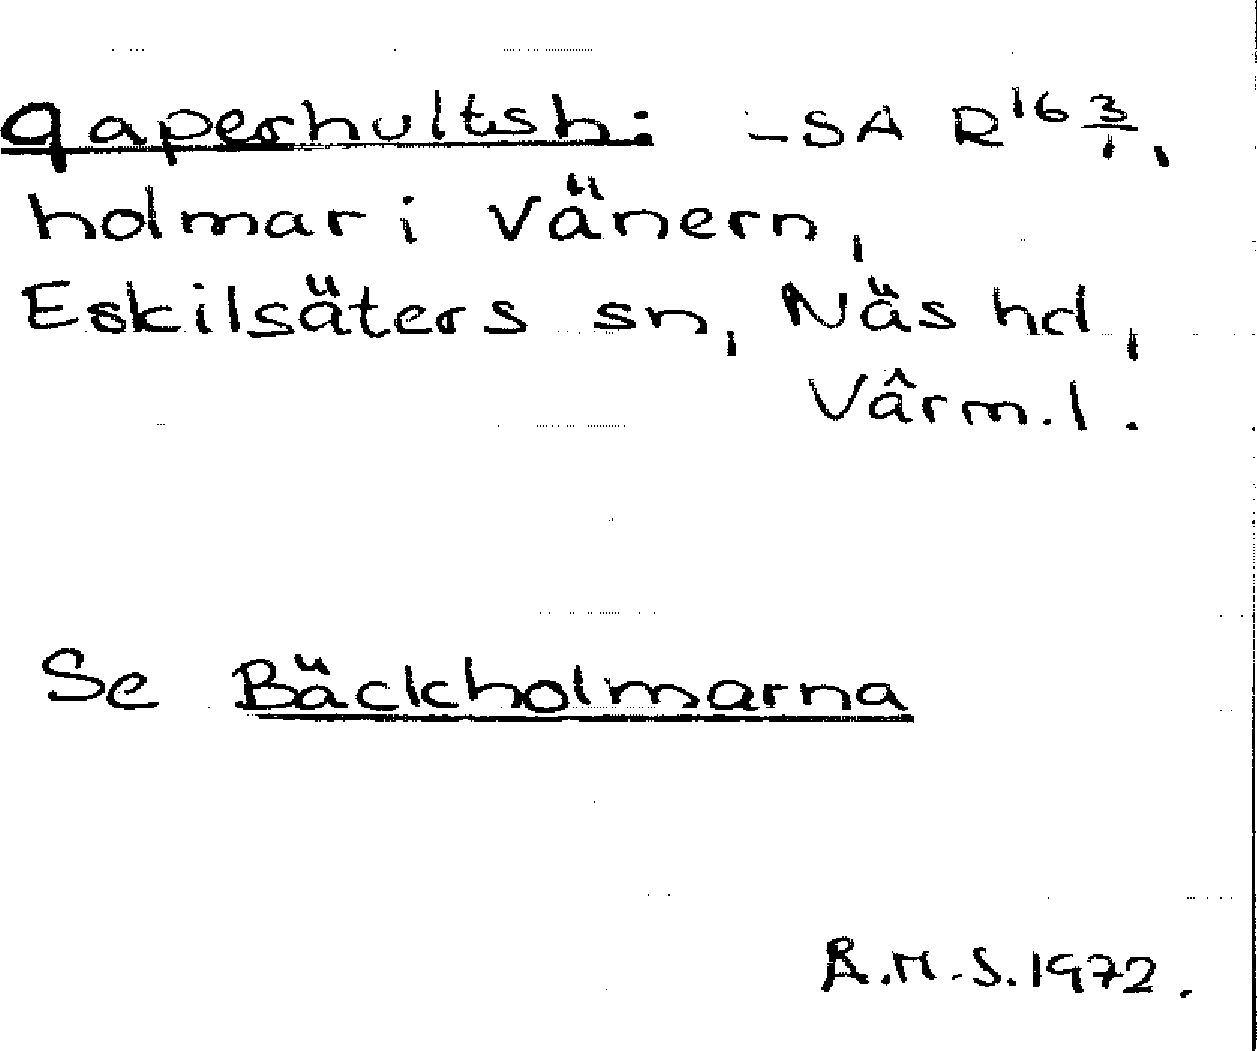 gaperhultsh: -SA R16 3/1,
holmar i Vänern,
Eskilsäters sn, Näs hd,
Värm.l.
Se Bäckholmarna
R.M.S. 1972.